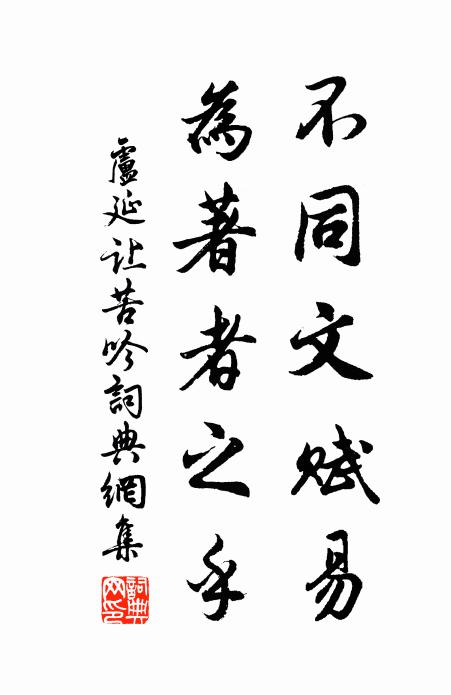 不同文赋易
為著者之乎
盧延让苦吟詞典網集
詞典网印